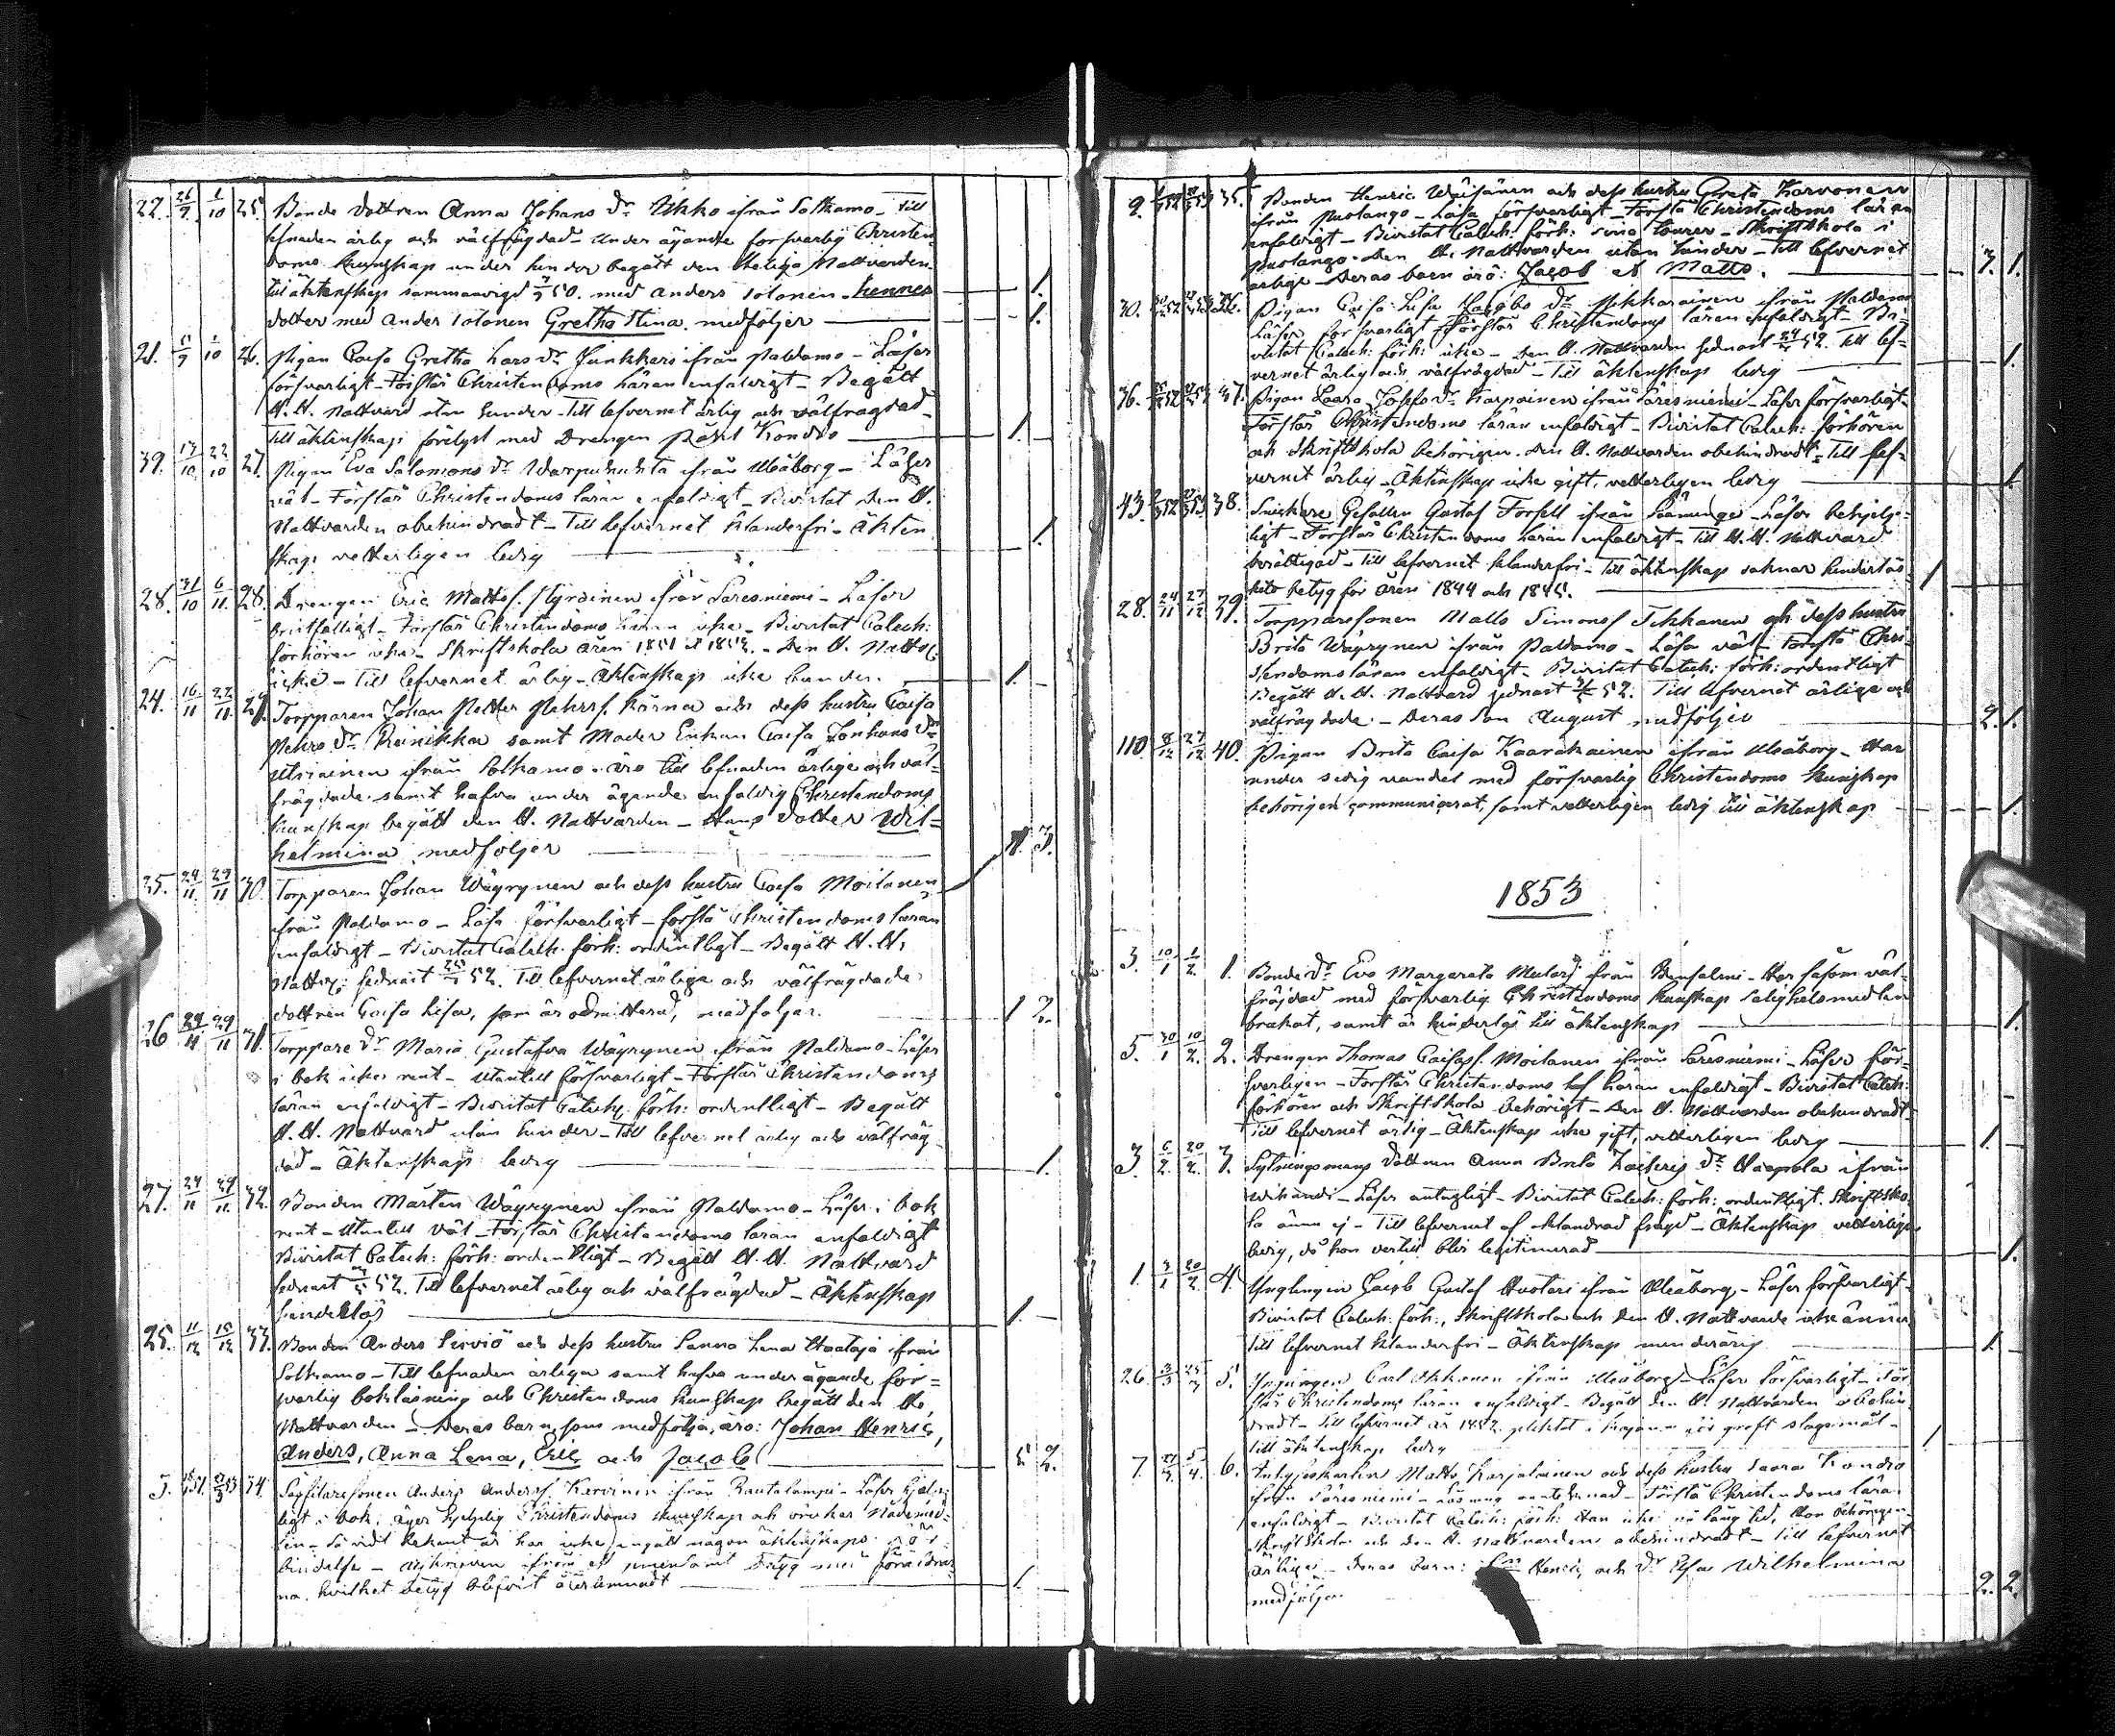 22. 26/9 1/10 25. Bonde dottren Anna Johans Dr Ukko ifrån Sotkamo - Till
lefnaden ärlig och välfrägdad - under ägande försvarlig Christen-
doms kunskap under hinder begått den Heliga Nattvarden
till äktenskap sammanvigd 50. med Anders Tolonen. hennes 1.
dotter med Anders Tolonen Gretha Stina medföljer 1.
21. 10 26. Pigan Caisa Gretha Lars Dr Junkkari ifrån Paldamo - Läser
försvarligt - Förstår Christendoms läran enfaldigt - Begått
H. H. Nattvard utan hinder - Till lefvernet ärlig och välfrägdad -
Till äktenskap förelyst med Drengen Påhl Kondio 1.
39. 17/10 22/10 27. Pigan Eva Salomons Dr Warpuhuhta ifrån Uleåborg - Läser
- Förstår Christendoms läran enfaldigt - Bivistat den H.
Nattvarden obehindradt - Till lefvernet klanderfri - Äkten
skap vetterligen ledig 1.
28. 31/10 6/11 28. Drengen Eric Mattss. ifrån Säresniemi - Läser
bristfälligt - Förstår Christendoms läran icke - Bivistat Catech:
förhören icke - Skriftskola åren 1851 & 1852. - Den H. Nattv:
icke - Till lefvernet ärlig - Äktenskap icke hinder. 1.
24. 16/11 22/11 29. Torpparen Johan Petter Pehrss. Kärnä och dess hustru Caisa
Pehrs Dr Reinikka samt Moder Enkan Caisa Johans Dr
Utriainen ifrån Sotkamo. äro till lefnaden ärlige och väl-
frägdade. samt hafva under ägande enfaldig Christendoms
kunskap begått den H. Nattvarden - Hans Dotter Wil-
helmina medföljer 1. 3.
25. 24/11 29/11 30. Torpparen Johan Wäyrynen och dess hustru Caisa Moilanen
ifrån Paldamo - Läsa försvarligt - förstå Christendoms läran
enfaldigt - Bivistat Catech. förh: ordentligt - Begått H. H.
Nattv: sednast 52. Till lefvernet ärliga och välfrägdade
dottren Caisa Lisa, som är admitterad, medföljer. 1 2.
26 24/11 29/11 31. Torppare Dr Maria Gustafva Wäyrynen ifrån Paldamo - Läser
i bok icke rent - Utantill försvarligt - Förstår Christendoms
läran enfaldigt - Bivistat Catech: förh: ordentligt - Begått
H. H. Nattvard utan hinder - Till lefvernet ärlig och välfräg-
dad - Äktenskap ledig 1.
27. 24/11 29/11 32. Bonden Mårten Wäyrynen ifrån Paldamo - Läser i bok
rent - Utantill väl - Förstår Christendoms läran enfaldigt
Bivistat Catech: förh: ordentligt - Begått H. H. Nattvard
sednast 52. Till lefvernet ärlig och välfrägdad - Äktenskap
hinderlös 1.
25. 11/12 15/12 33. Bonden Anders Serviö och dess hustru Sanna Lena Haataja ifrån
Sotkamo - Till lefnaden ärliga samt hafva under ägande för=
svarlig bokläsning och Christendoms kunskap begått den He.
Nattvarden - Deras barn, som medfölja, äro: Johan Henric,
Anders, Anna Lena, Eric och Jacob 5 2.
3. 34. Anders Anderss. Karvinen ifrån Rautalampi - Läser hjelp
ligt i bok, äger hjelplig Christendoms kunskap och brukar Nådemed-
len - Så vidt bekant är har icke ingått någon äktenskaps för
bindelse - ifrån ett gemensamt betyg med föräldrar
na. hvilket betyg blifvit återlemnadt 1.
9. 35. Bonden Henric Wäisänen och dess hustru Greta Karvonen
ifrån Puolango - Läsa försvarligt - Förstå Christendoms läran
enfaldigt - Bivistat Catech: förh: sina tourer - Skriftskola i
Puolango. Den H. Nattvarden utan hinder - Till lefvernet
ärlige - Deras barn äro: Jacob & Matts. 3. 1.
30. 36. Pigan Caisa Lisa Jacobs Dr Mikkarainen ifrån Paldamo
Läser försvarligt - Förstår Christendoms läran enfaldigt - Bi-
vistat Catech: förh: icke - Den H. Nattvarden sednast 52. Till lef=
vernet ärlig och välfrägdad - Till äktenskap ledig 1.
36. 37. Pigan Saara Josefs Dr Karpainen ifrån Säresniemi - Läser försvarligt -
Förstår Christendoms läran enfaldigt - Bivistat Catech: förhören
och Skriftskola behörigen. Den H. Nattvarden obehindradt - Till lef=
vernet ärlig - Äktenskap icke gift, vetterligen ledig 1.
43. 38. Snickare Gesällen Gustaf Forsell ifrån - Läser behjelp-
ligt - Förstår Christendoms läran enfaldigt - Till H. H. Nattvard
berättigad - Till lefvernet klanderfri - Till äktenskap saknar hinderlös
hets betyg för åren 1844 och 1845. 1
28. 24/11 27/12 39. Torpparesonen Matts Simonss. Tikkanen och dess hustru
Brita Wäyrynen ifrån Paldamo - Läsa väl - Förstå Chri-
stendomsläran enfaldigt - Bivistat Catech: förh: ordentligt
Begått H. H. Nattvard sednast 52. Till lefvernet ärlige och
välfrägdade. - Deras Son August medföljer 2. 1.
110. 8/12 27/12 40. Pigan Brita Caisa Kaarakainen ifrån Uleåborg - Har
under sedig vandel med försvarlig Christendoms kunskap
behörigen communicerat, samt vetterligen ledig till äktenskap 1.
1853
3. 10/1 1/2 1. Bonde Dr Eva Margareta ifrån Idensalmi - Har såsom väl-
fräjdad med försvarlig Christendoms kunskap salighetsmedlen
brukat, samt är hinderlös till äktenskap 1.
5. 30/1 10/2 2. Drengen Thomas Caisass. Moilanen ifrån Säresniemi - Läser för-
svarligen - Förstår Christendoms läran enfaldigt - Bivistat Catech:
förhören och Skriftskola behörigt - Den H. Nattvarden obehindradt
Till lefvernet ärlig - Äktenskap icke gift, vetterligen ledig 1.
3. 6/2 20/2 3. Sytningsmans Dottren Anna Brita Zachris Dr Haapola ifrån
Wihandi - Läser antagligt - Bivistat Catech: förh: ordentligt. Skriftsko
la ännu ej - Till lefvernet af oklandrad frägd - Äktenskap vetterlig
ledig, då hon vertill blir legitimerad 1.
1. 3/1 20/2 4. Ynglingen Jacob Gustaf Huotari ifrån Uleåborg - Läser försvarligt -
Bivistat Catech: förh:, Skriftskola och den H. Nattvarde icke ännu
Till lefvernet klanderfri - Äktenskap minderårig 1.
26. 5. Ynglingen Carl Okkonen ifrån Uleåborg - Läser försvarligt - För
står Christendoms läran enfaldigt - Begått den H. Nattvarden obehin
dradt - Till lefvernet är 1852. pliktat i Kajana för groft slagsmål -
till äktenskap ledig 1
7. 5/4 6. Matts Karjalainen och dess hustru Saara Kondio
ifrån Säresniemi - - Förstå Christendoms lära
enfaldigt - Bivistat Catech: förh: Han icke på lång tid, Hon behörigen -
Skriftskola och den H. Nattvarden obehindradt - Till lefvernet
ärlige - Deras barn: Henric, och Dr Lisa Wilhelmina
medfölja. 2. 2.